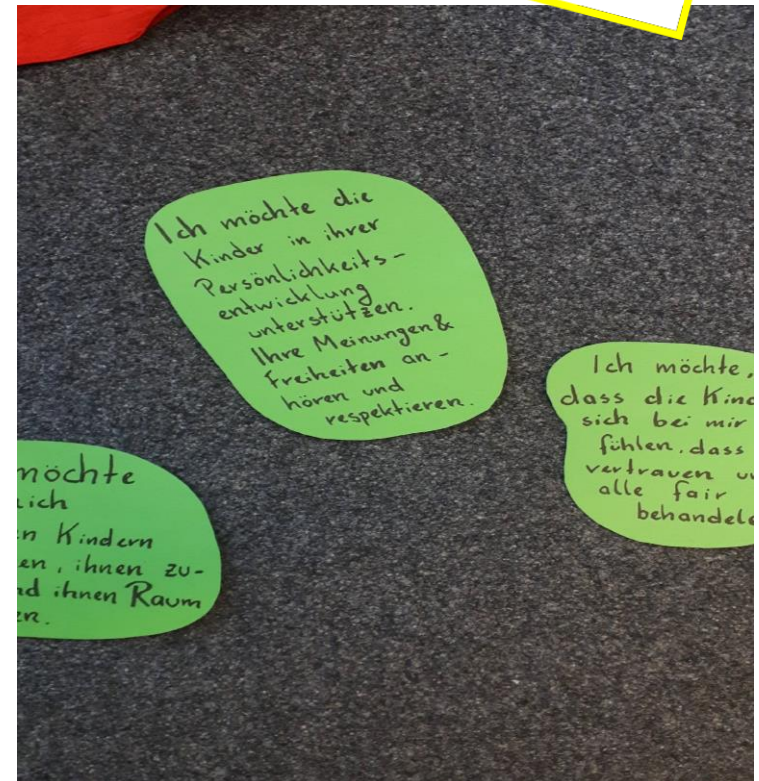 Ich möchte die
Kinder in ihrer
Persönlichkeits-
entwicklung
unterstützen.
Ihre Meinungen &
Freiheiten an-
hören und
respektieren.
Ich möchte,
dass die
sich bei mir
fühlen, dass
vertrauen
alle fair
möchte
Kindern
ihnen zu-
ihnen Raum